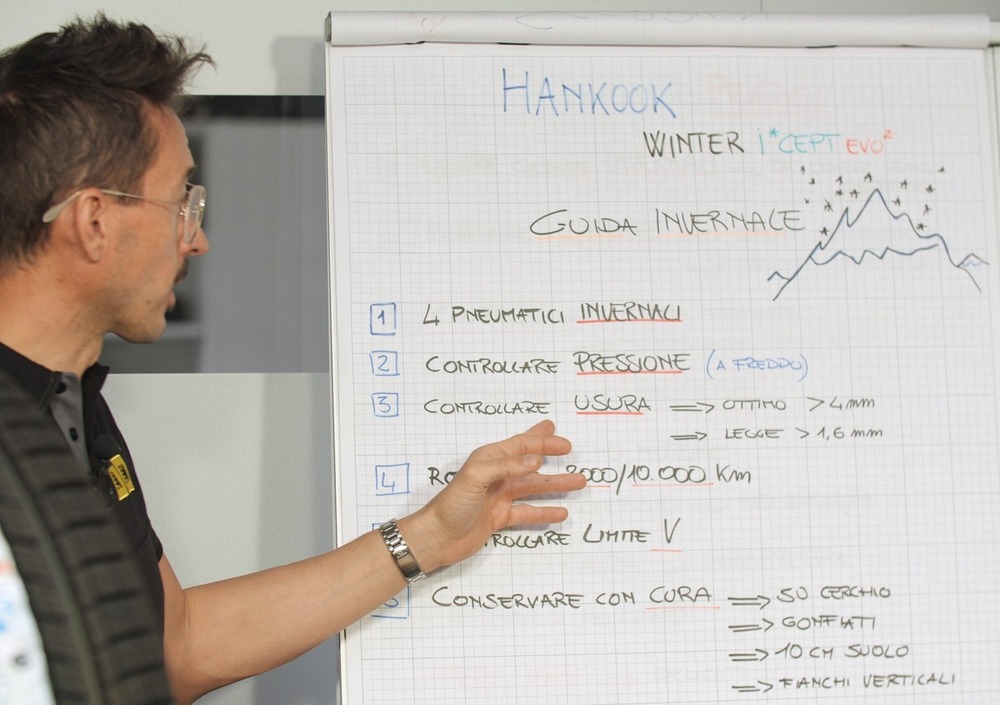 HANKOOK
WINTER i*CEPT EVO²
GUIDA INVERNALE
1 4 PNEUMATICI INVERNALI
2 CONTROLLARE PRESSIONE (A FREDDO)
3 CONTROLLARE USURA => OTTIMO > 4 mm
=> LEGGE > 1,6 mm
4 000/10.000 Km
LIMITE V
CONSERVARE CON CURA => SU CERCHIO
=> GONFIATI
=> 10 CM SUOLO
=> FIANCHI VERTICALI